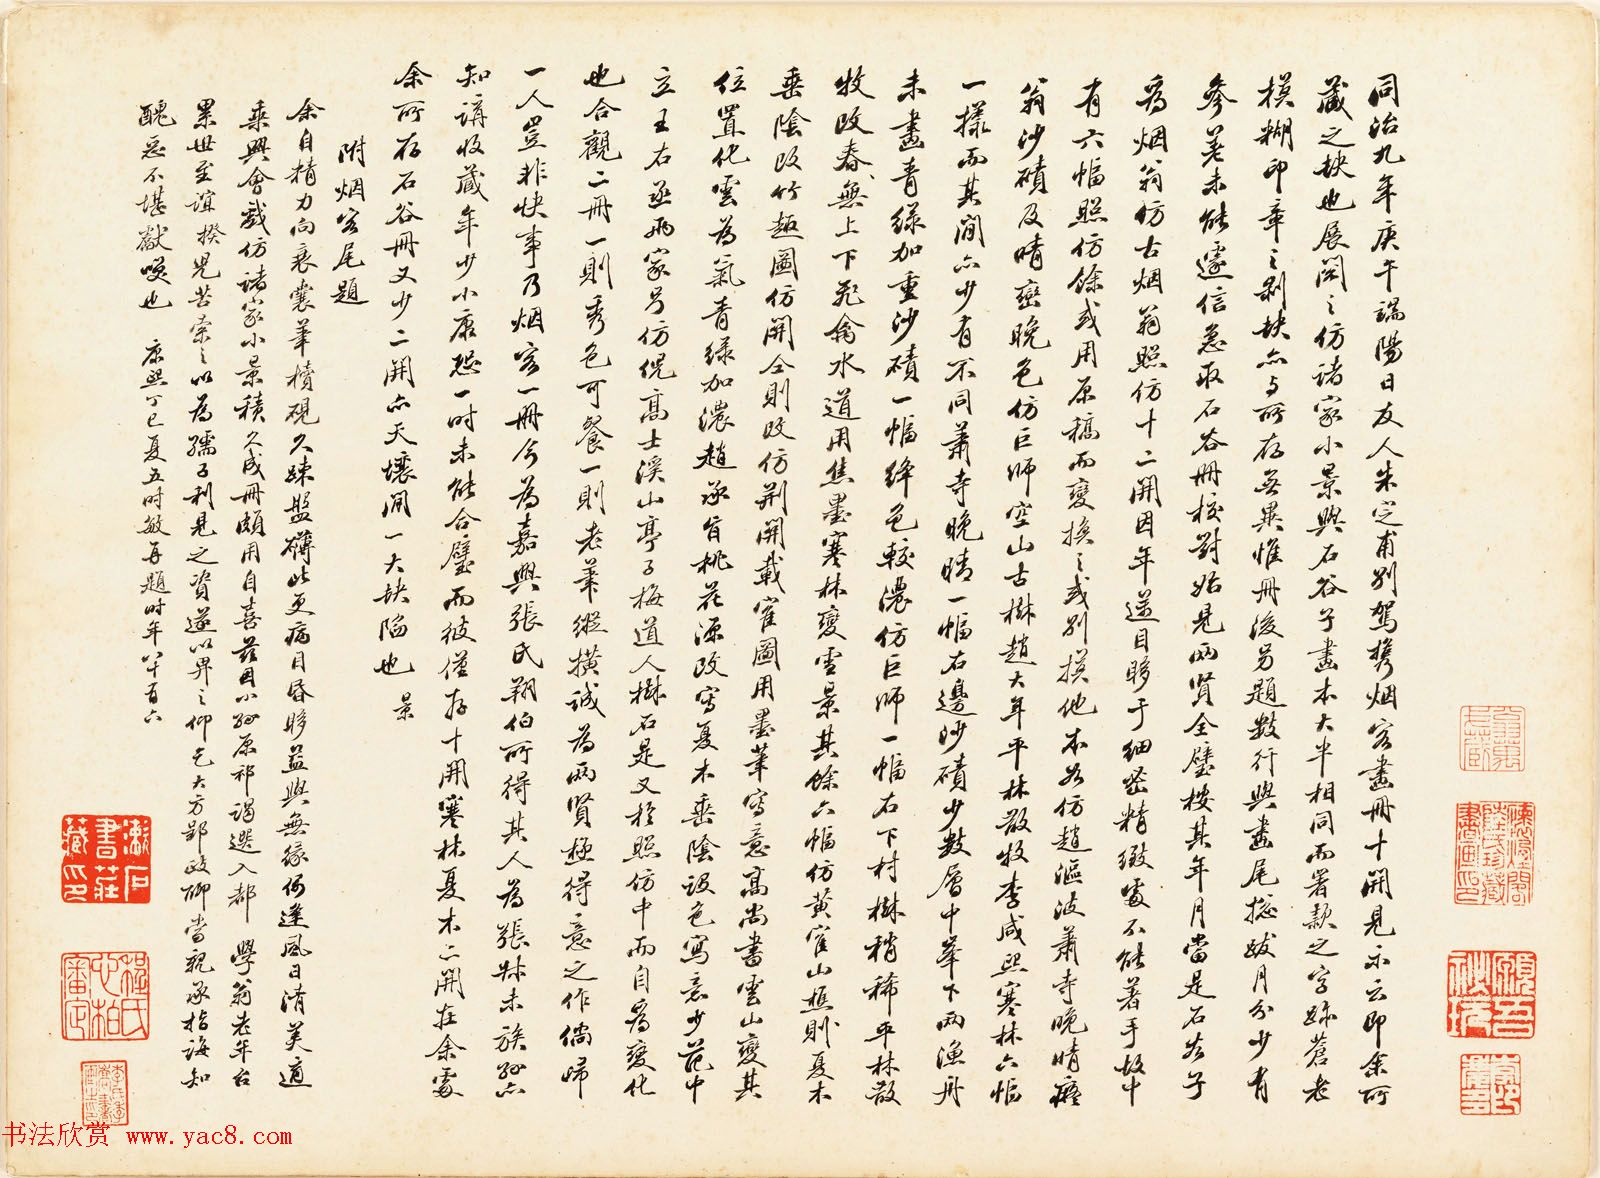 同治九年庚午端陽日友人朱定甫別駕携烟客畫冊十開見示云即余所
藏之缺也展閱之仿諸家小景與石谷子畫本大半相同而署款之字跡蒼老
模糊印章之剥缺亦与所存無異惟冊後另題数行與畫尾総跋月分少有
參差未能遽信急取石谷冊校對始見兩賢全璧按其年月當是石谷子
為烟翁仿古烟翁照仿十二開因年邁目眵于細密精緻處不能著手故中
有六幅照仿餘或用原稿而變換之或別摸他本如仿趙漚波蕭寺晚晴癡
翁沙磧及晴巒晚色仿巨師空山古樹趙大年平林散牧李咸熙寒林六幅
一樣而其間亦少有不同蕭寺晚晴一幅右邊沙磧少数層中峯下兩漁舟
未畫青緑加重沙磧一幅絳色較濃仿巨師一幅右下村樹稍稀平林散
牧改春無上下飛禽水道用焦墨寒林變雪景其餘六幅仿黄崔山樵則夏木
垂陰改竹趣圖仿開仝則改仿荆開載崔圖用墨筆寫意高尚書雲山變其
位置化雲為氣青緑加濃趙承旨桃花源改寫夏木垂陰設色寫意少范中
立王右丞兩家另仿倪高士溪山亭子梅道人樹石是又於照仿中而自為變化
也合觀二冊一則秀色可餐一則老筆縱橫誠為兩賢極得意之作倘歸
一人豈非快事乃烟客一冊今為嘉興張氏翔伯所得其人為張叔未族孫亦
知講收藏年少小康恐一时未能合璧而彼僅存十開寒林夏木二開在余處
余所存石谷冊又少二開亦天壤間一大缺陷也 景
附烟客尾題
余自精力向衰囊筆櫝硯久疎盤礴此更病目昏眵益與無緣偶逢風日清美適
乘興會戲仿諸家小景積久成冊頗用自喜茲因小孫原祁謁選入都 學翁老年台
累世至誼揆兒苦索之以為孺子利見之資遂以畀之仰乞大方郢政聊當親承指誨知
醜惡不堪獻唉也 康熙丁巳夏五时敏再題时年八十有六
漱石
書莊
藏印
程氏
心柏
審定
书法欣赏 www.yac8.com